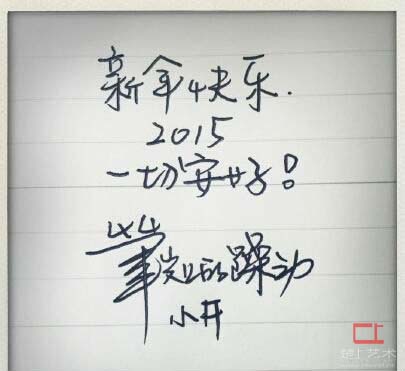 新年快乐.
2015
一切安好!
的躁动
小开
上艺术